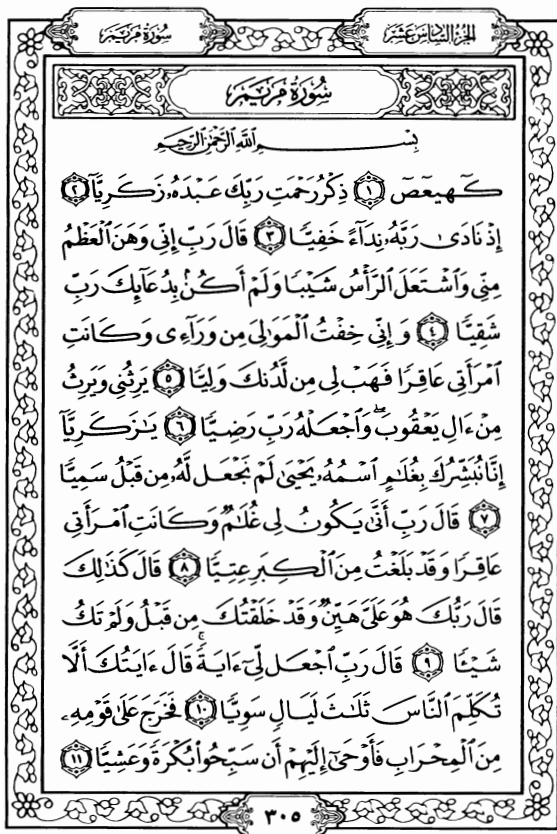 سُورَةُ مَرْيَمَ
الجُزْءُ السَّادِسَ عَشَرَ
سُورَةُ مَرْيَمَ
بِسْمِ ٱللَّهِ ٱلرَّحْمَٰنِ ٱلرَّحِيمِ
كٓهيعٓصٓ ﴿١﴾ ذِكْرُ رَحْمَتِ رَبِّكَ عَبْدَهُۥ زَكَرِيَّآ ﴿٢﴾
إِذْ نَادَىٰ رَبَّهُۥ نِدَآءً خَفِيًّا ﴿٣﴾ قَالَ رَبِّ إِنِّى وَهَنَ ٱلْعَظْمُ
مِنِّى وَٱشْتَعَلَ ٱلرَّأْسُ شَيْبًا وَلَمْ أَكُنۢ بِدُعَآئِكَ رَبِّ
شَقِيًّا ﴿٤﴾ وَإِنِّى خِفْتُ ٱلْمَوَٰلِىَ مِن وَرَآءِى وَكَانَتِ
ٱمْرَأَتِى عَاقِرًا فَهَبْ لِى مِن لَّدُنكَ وَلِيًّا ﴿٥﴾ يَرِثُنِى وَيَرِثُ
مِنْ ءَالِ يَعْقُوبَ ۖ وَٱجْعَلْهُ رَبِّ رَضِيًّا ﴿٦﴾ يَٰزَكَرِيَّآ
إِنَّا نُبَشِّرُكَ بِغُلَٰمٍ ٱسْمُهُۥ يَحْيَىٰ لَمْ نَجْعَل لَّهُۥ مِن قَبْلُ سَمِيًّا
﴿٧﴾ قَالَ رَبِّ أَنَّىٰ يَكُونُ لِى غُلَٰمٌ وَكَانَتِ ٱمْرَأَتِى
عَاقِرًا وَقَدْ بَلَغْتُ مِنَ ٱلْكِبَرِ عِتِيًّا ﴿٨﴾ قَالَ كَذَٰلِكَ
قَالَ رَبُّكَ هُوَ عَلَىَّ هَيِّنٌ وَقَدْ خَلَقْتُكَ مِن قَبْلُ وَلَمْ تَكُ
شَيْـًٔا ﴿٩﴾ قَالَ رَبِّ ٱجْعَل لِّىٓ ءَايَةً ۚ قَالَ ءَايَتُكَ أَلَّا
تُكَلِّمَ ٱلنَّاسَ ثَلَٰثَ لَيَالٍ سَوِيًّا ﴿١٠﴾ فَخَرَجَ عَلَىٰ قَوْمِهِۦ
مِنَ ٱلْمِحْرَابِ فَأَوْحَىٰٓ إِلَيْهِمْ أَن سَبِّحُوا۟ بُكْرَةً وَعَشِيًّا ﴿١١﴾
٣٠٥